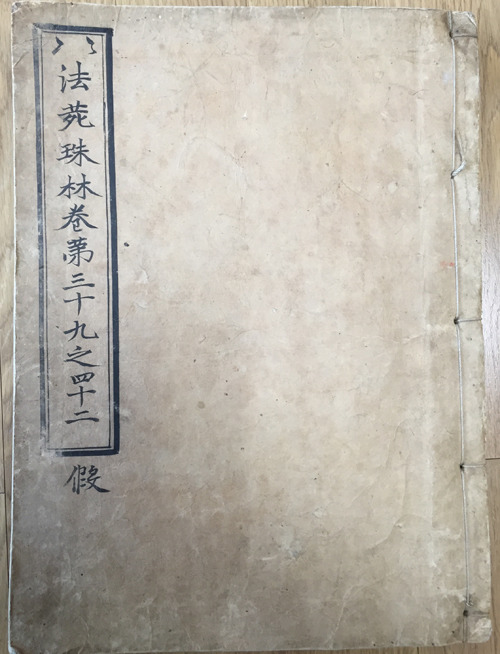 法苑珠林卷第三十九之四十二
假